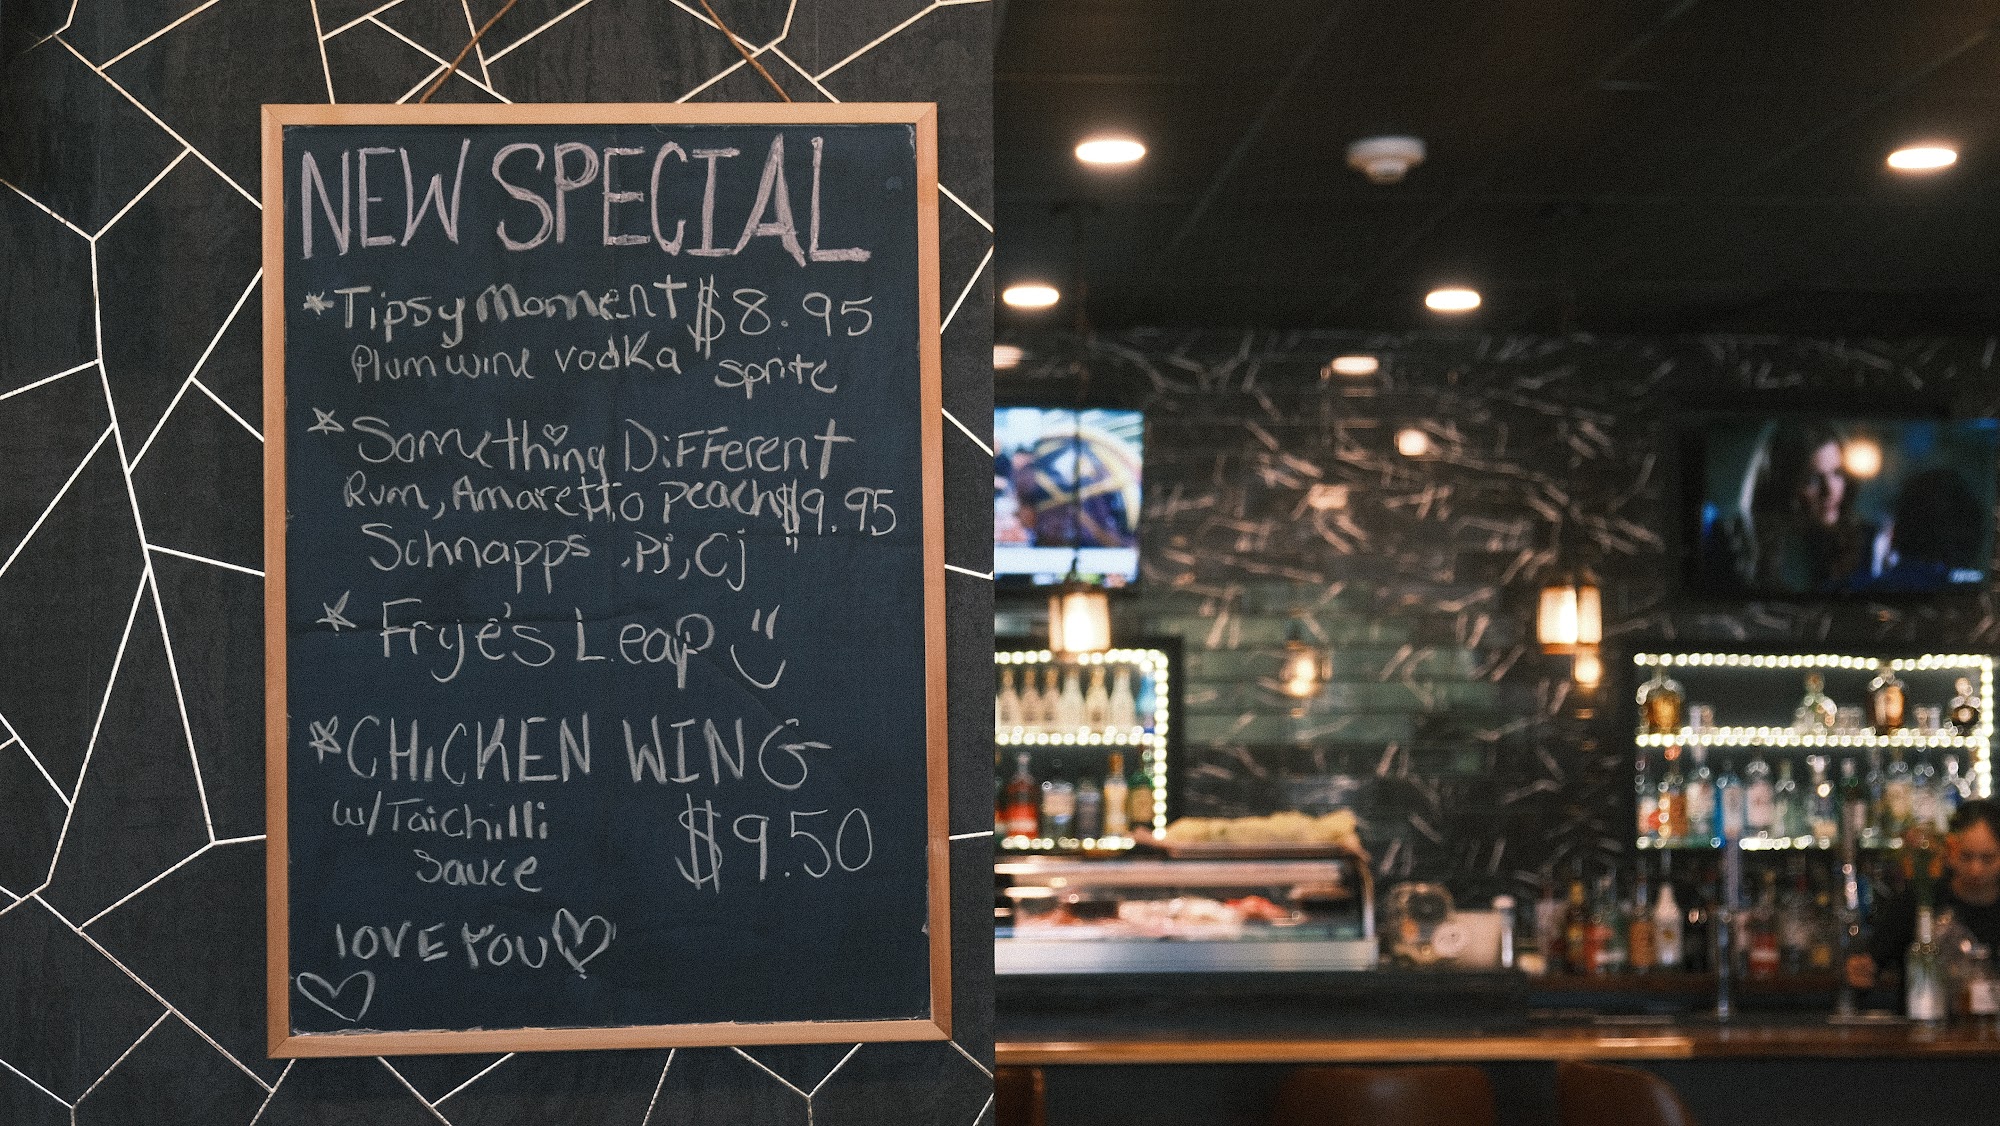 NEW SPECIAL
*Tipsy Moment $8.95
Plum wine vodka sprite
*Something Different
Rum, Amaretto peach $9.95
Schnapps, Pj, Cj
*Frye's Leap
*CHiCKEN WING
w/Taichilli
sauce $9.50
lOVE YOU